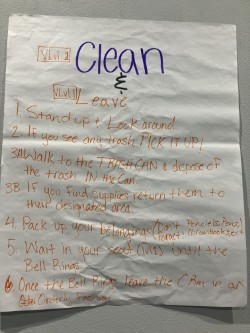 VLVL 2 Clean
&
VLVL 1 Leave
1. Stand up + Look around
2. If you see any trash PICK IT UP!
3A Walk to the TRASHCAN & depose of
the trash IN the Can.
3B If you find supplies return them to
their designated area.
4. Pack up your belongings
5. Wait in your seat until the
Bell Rings.
6. Once the Bell Rings leave the C in an
Orderly Fashion